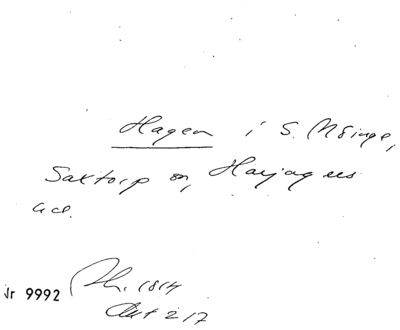 Hagen i S. Möinge,
Saxtorp sn, Harjagers
hd.
Nr 9992
1814
Akt 217